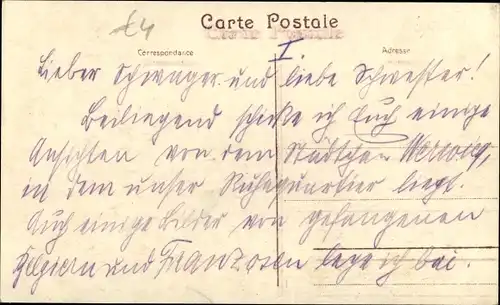 £4
Carte Postale
I
Correspondance
Adresse
Lieber Schwager und liebe Schwester!
Beiliegend schicke ich Euch einige
Ansichten von dem Städtchen Werwicq,
in dem unser Ruhequartier liegt.
Auch einige Bilder von gefangenen
Belgiern und Franzosen lege ich bei.